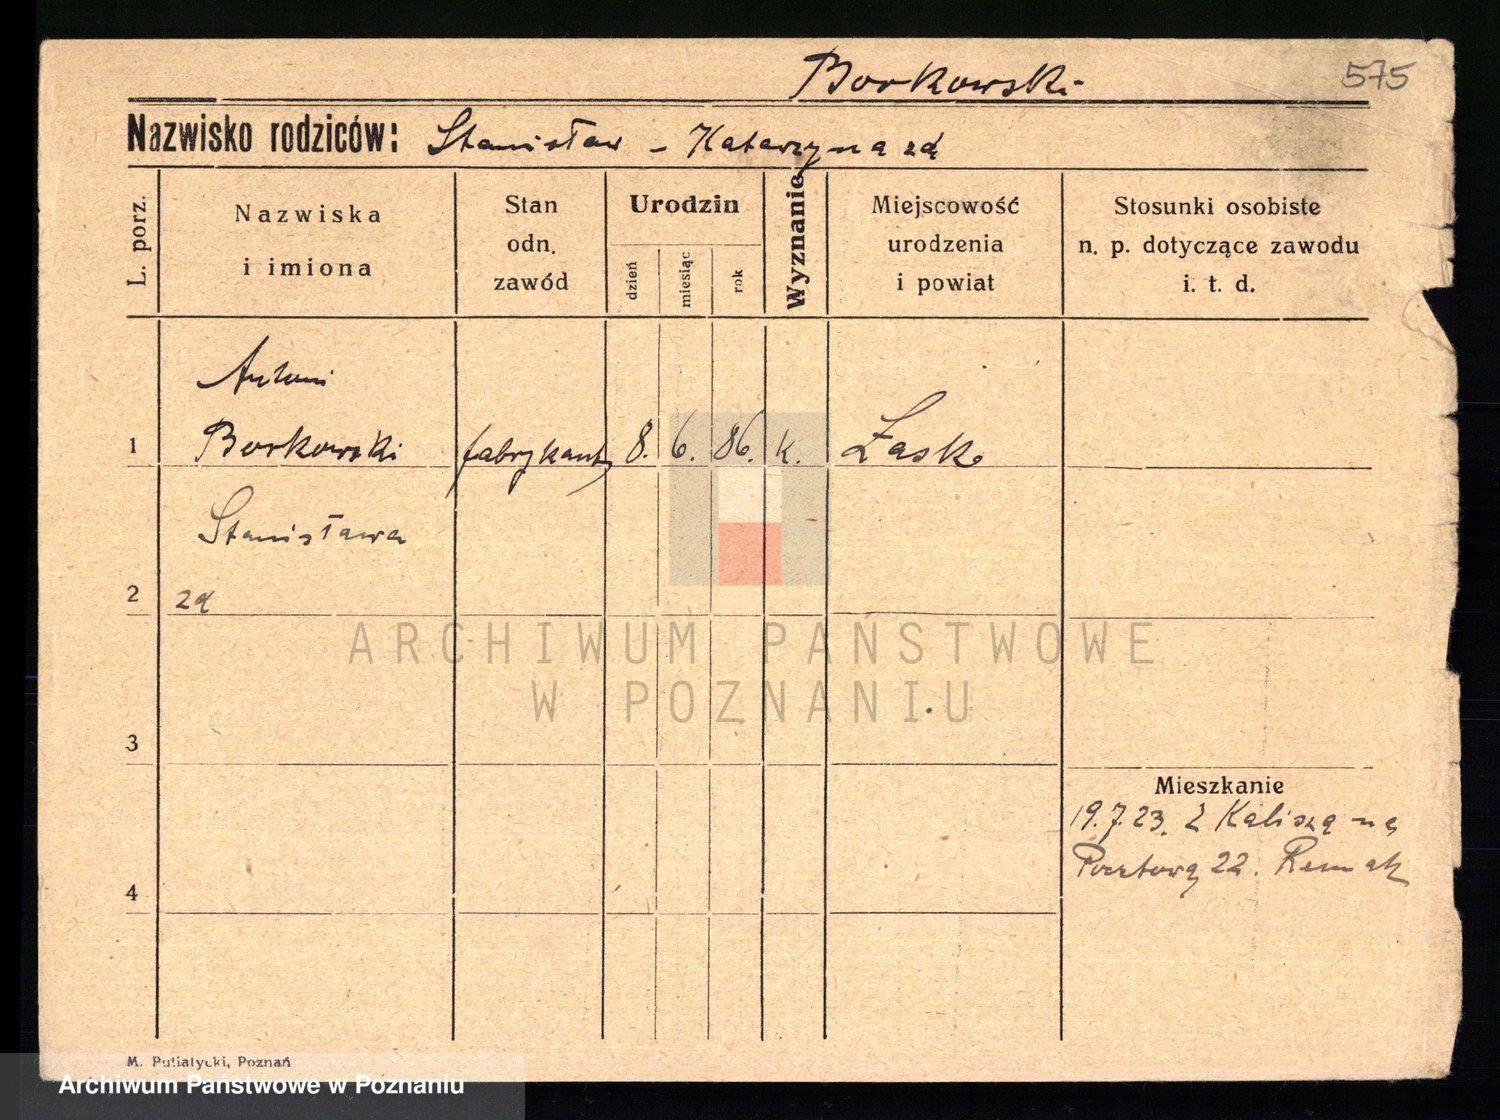 Borkowski
575
Nazwisko rodziców: Stanisław - Katarzyna zd
L. porz.
Nazwiska
i imiona
Stan
odn.
zawód
Urodzin
dzień
miesiąc
rok
Wyznanie
Miejscowość
urodzenia
i powiat
Stosunki osobiste
n. p. dotyczące zawodu
i. t. d.
Antoni
1 Borkowski fabrykant 8. 6. 86. k. Łask
Stanisława
2 zd
ARCHIWUM PAŃSTWOWE
W POZNANIU
3
Mieszkanie
19.7.23. z Kalisza na
4 Pocztową 22.
M. Putiatycki, Poznań
Archiwum Państwowe w Poznaniu